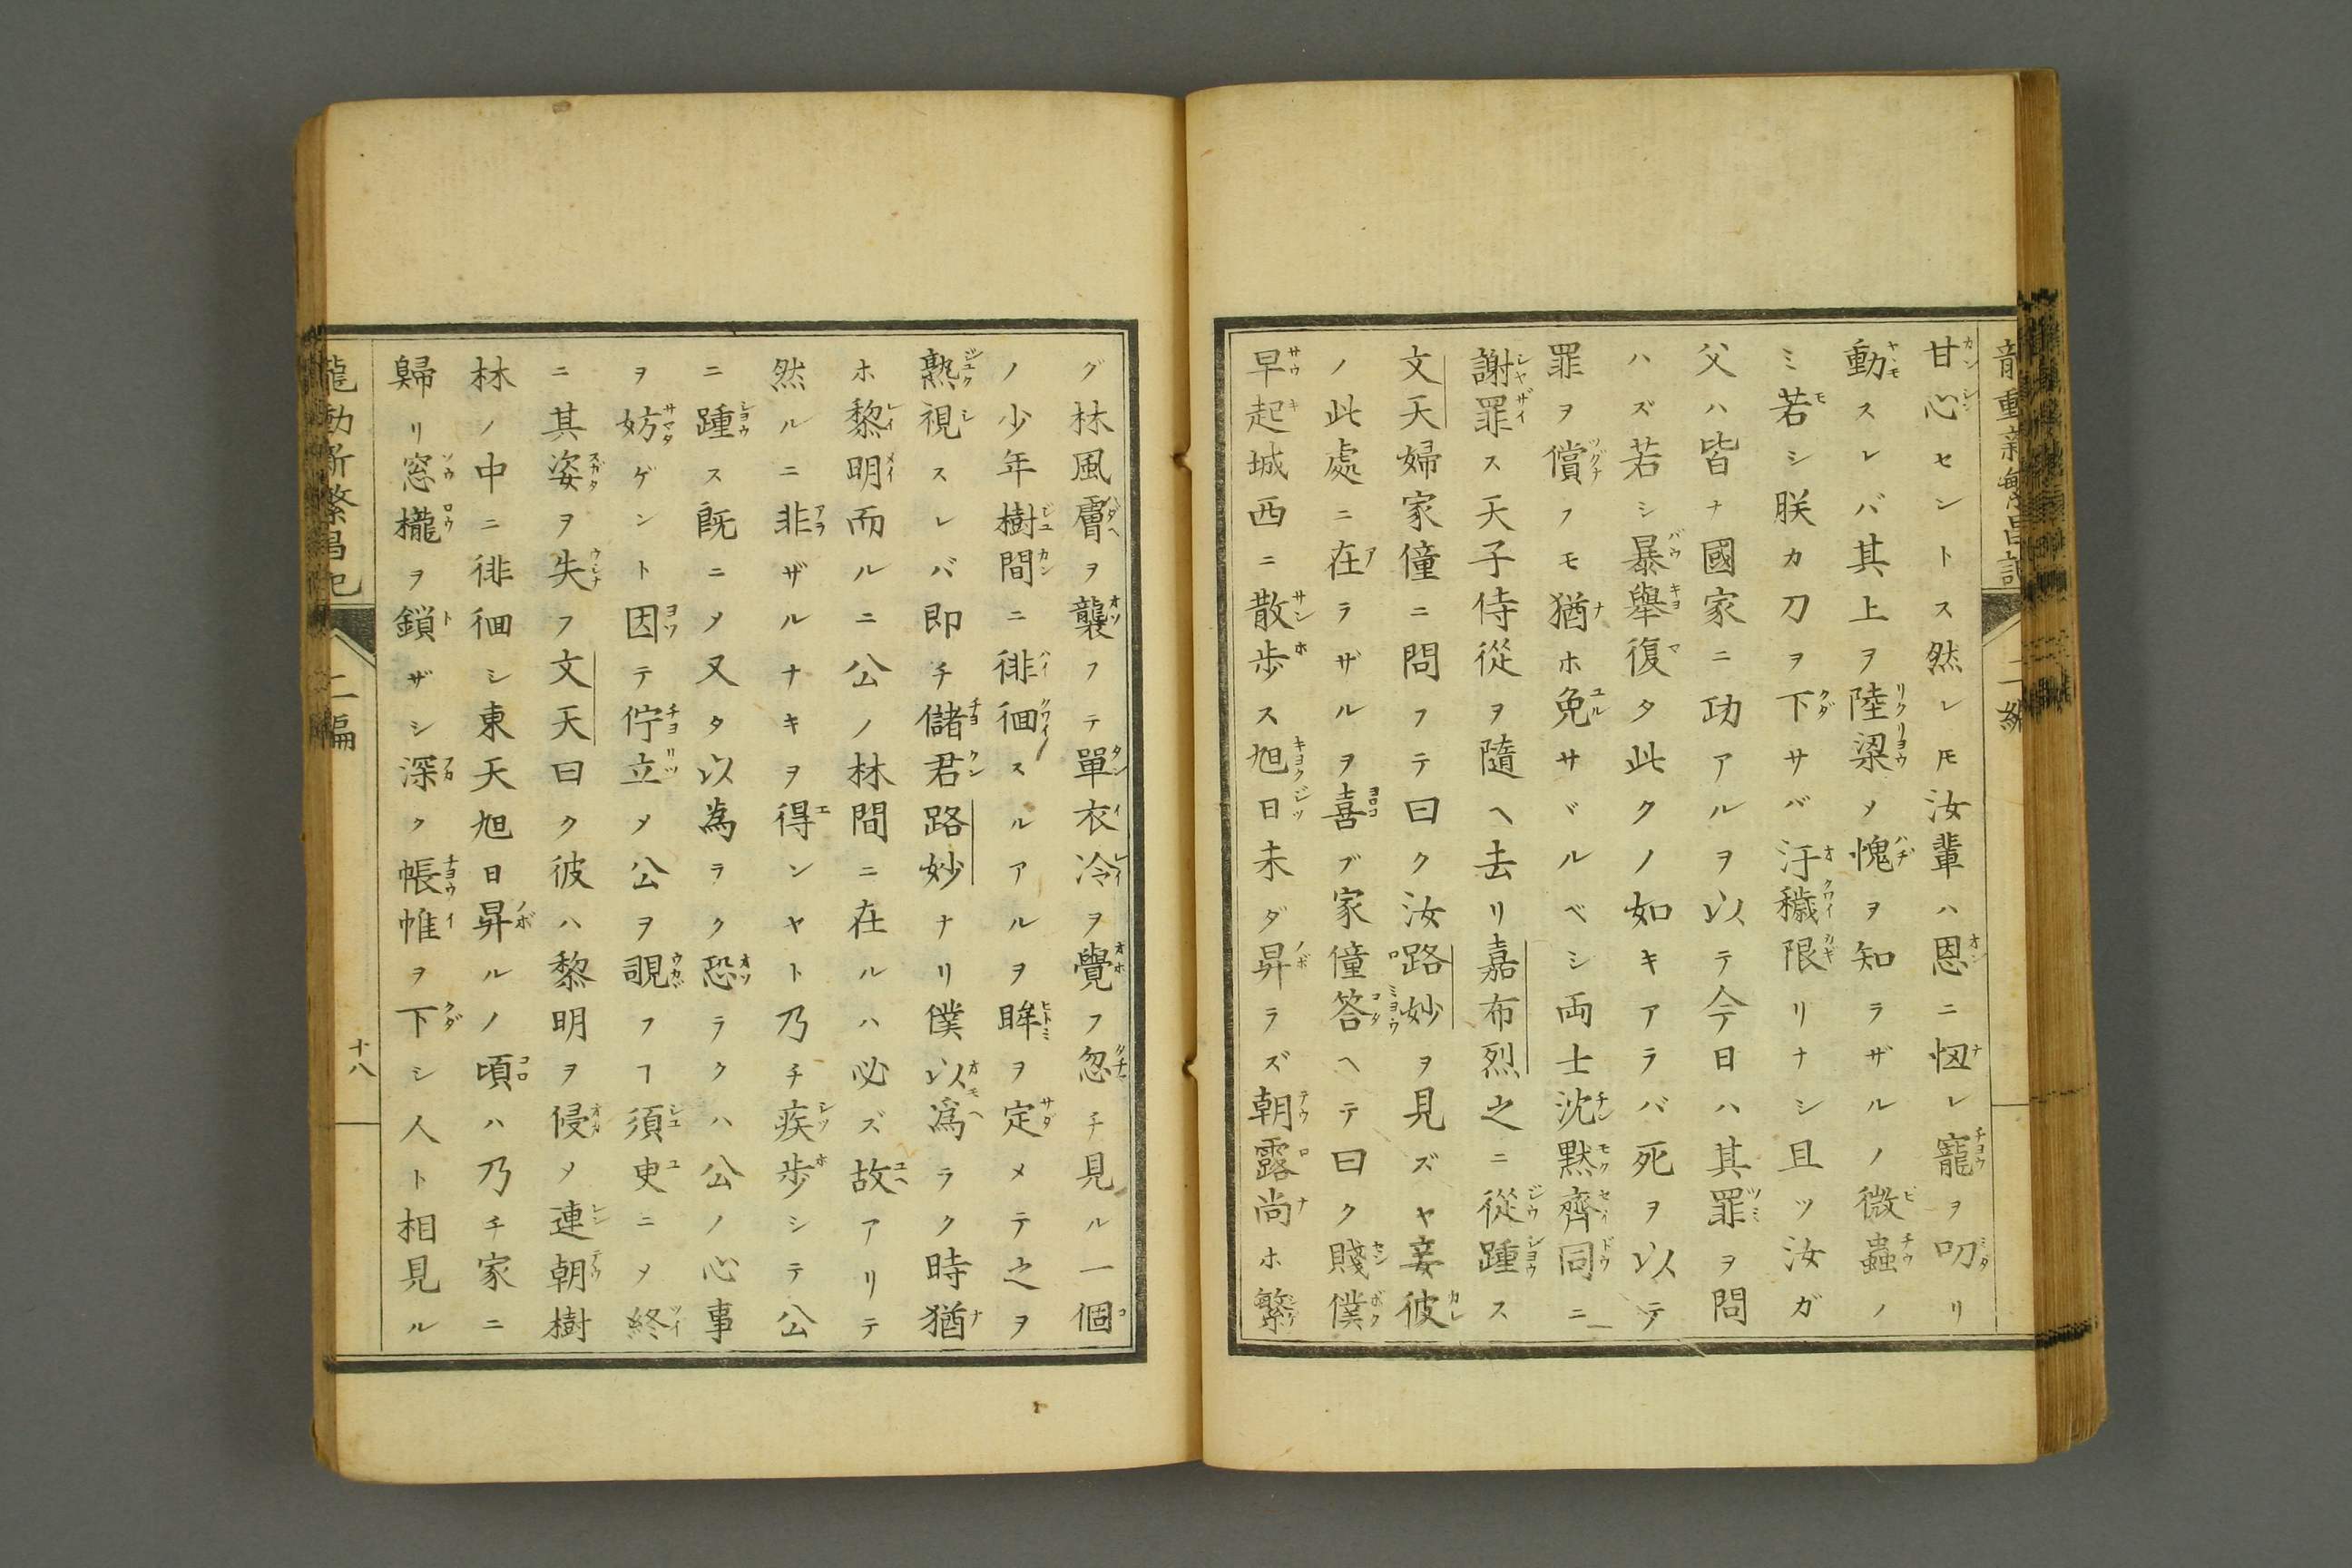 甘心セントス然レ𪜈汝輩ハ恩ニ忸レ寵ヲ叨リ
動スレバ其上ヲ陸梁〆愧ヲ知ラザルノ微蟲ノ
ミ若シ朕カ刀ヲ下サバ汙穢限リナシ且ツ汝ガ
父ハ皆ナ國家ニ功アルヲ以テ今日ハ其罪ヲ問
ハズ若シ暴舉復タ此クノ如キアラバ死ヲ以テ
罪ヲ償フモ猶ホ免サヾルベシ両士沈黙齊同ニ
謝罪ス天子侍從ヲ隨ヘ去リ嘉布烈之ニ從踵ス
文天婦家僮ニ問フテ曰ク汝路妙ヲ見ズヤ妾彼
ノ此處ニ在ラザルヲ喜ブ家僮答ヘテ曰ク賤僕
早起城西ニ散歩ス旭日未ダ昇ラズ朝露尚ホ繁
グ林風膚ヲ襲フテ單衣冷ヲ覺フ忽チ見ル一個
ノ少年樹間ニ徘徊スルアルヲ眸ヲ定メテ之ヲ
熟視スレバ即チ儲君路妙ナリ僕以爲ラク時猶
ホ黎明而ルニ公ノ林間ニ在ルハ必ズ故アリテ
然ルニ非ザルナキヲ得ンヤト乃チ疾歩シテ公
ニ踵ス既ニ〆又タ以為ラク恐ラクハ公ノ心事
ヲ妨ゲント因テ佇立〆公ヲ覗フヿ須臾ニ〆終
ニ其姿ヲ失フ文天曰ク彼ハ黎明ヲ侵〆連朝樹
林ノ中ニ徘徊シ東天旭日昇ルノ頃ハ乃チ家ニ
歸リ窓櫳ヲ鎖ザシ深ク帳帷ヲ下シ人ト相見ル
龍動新繁昌記
二編
十八